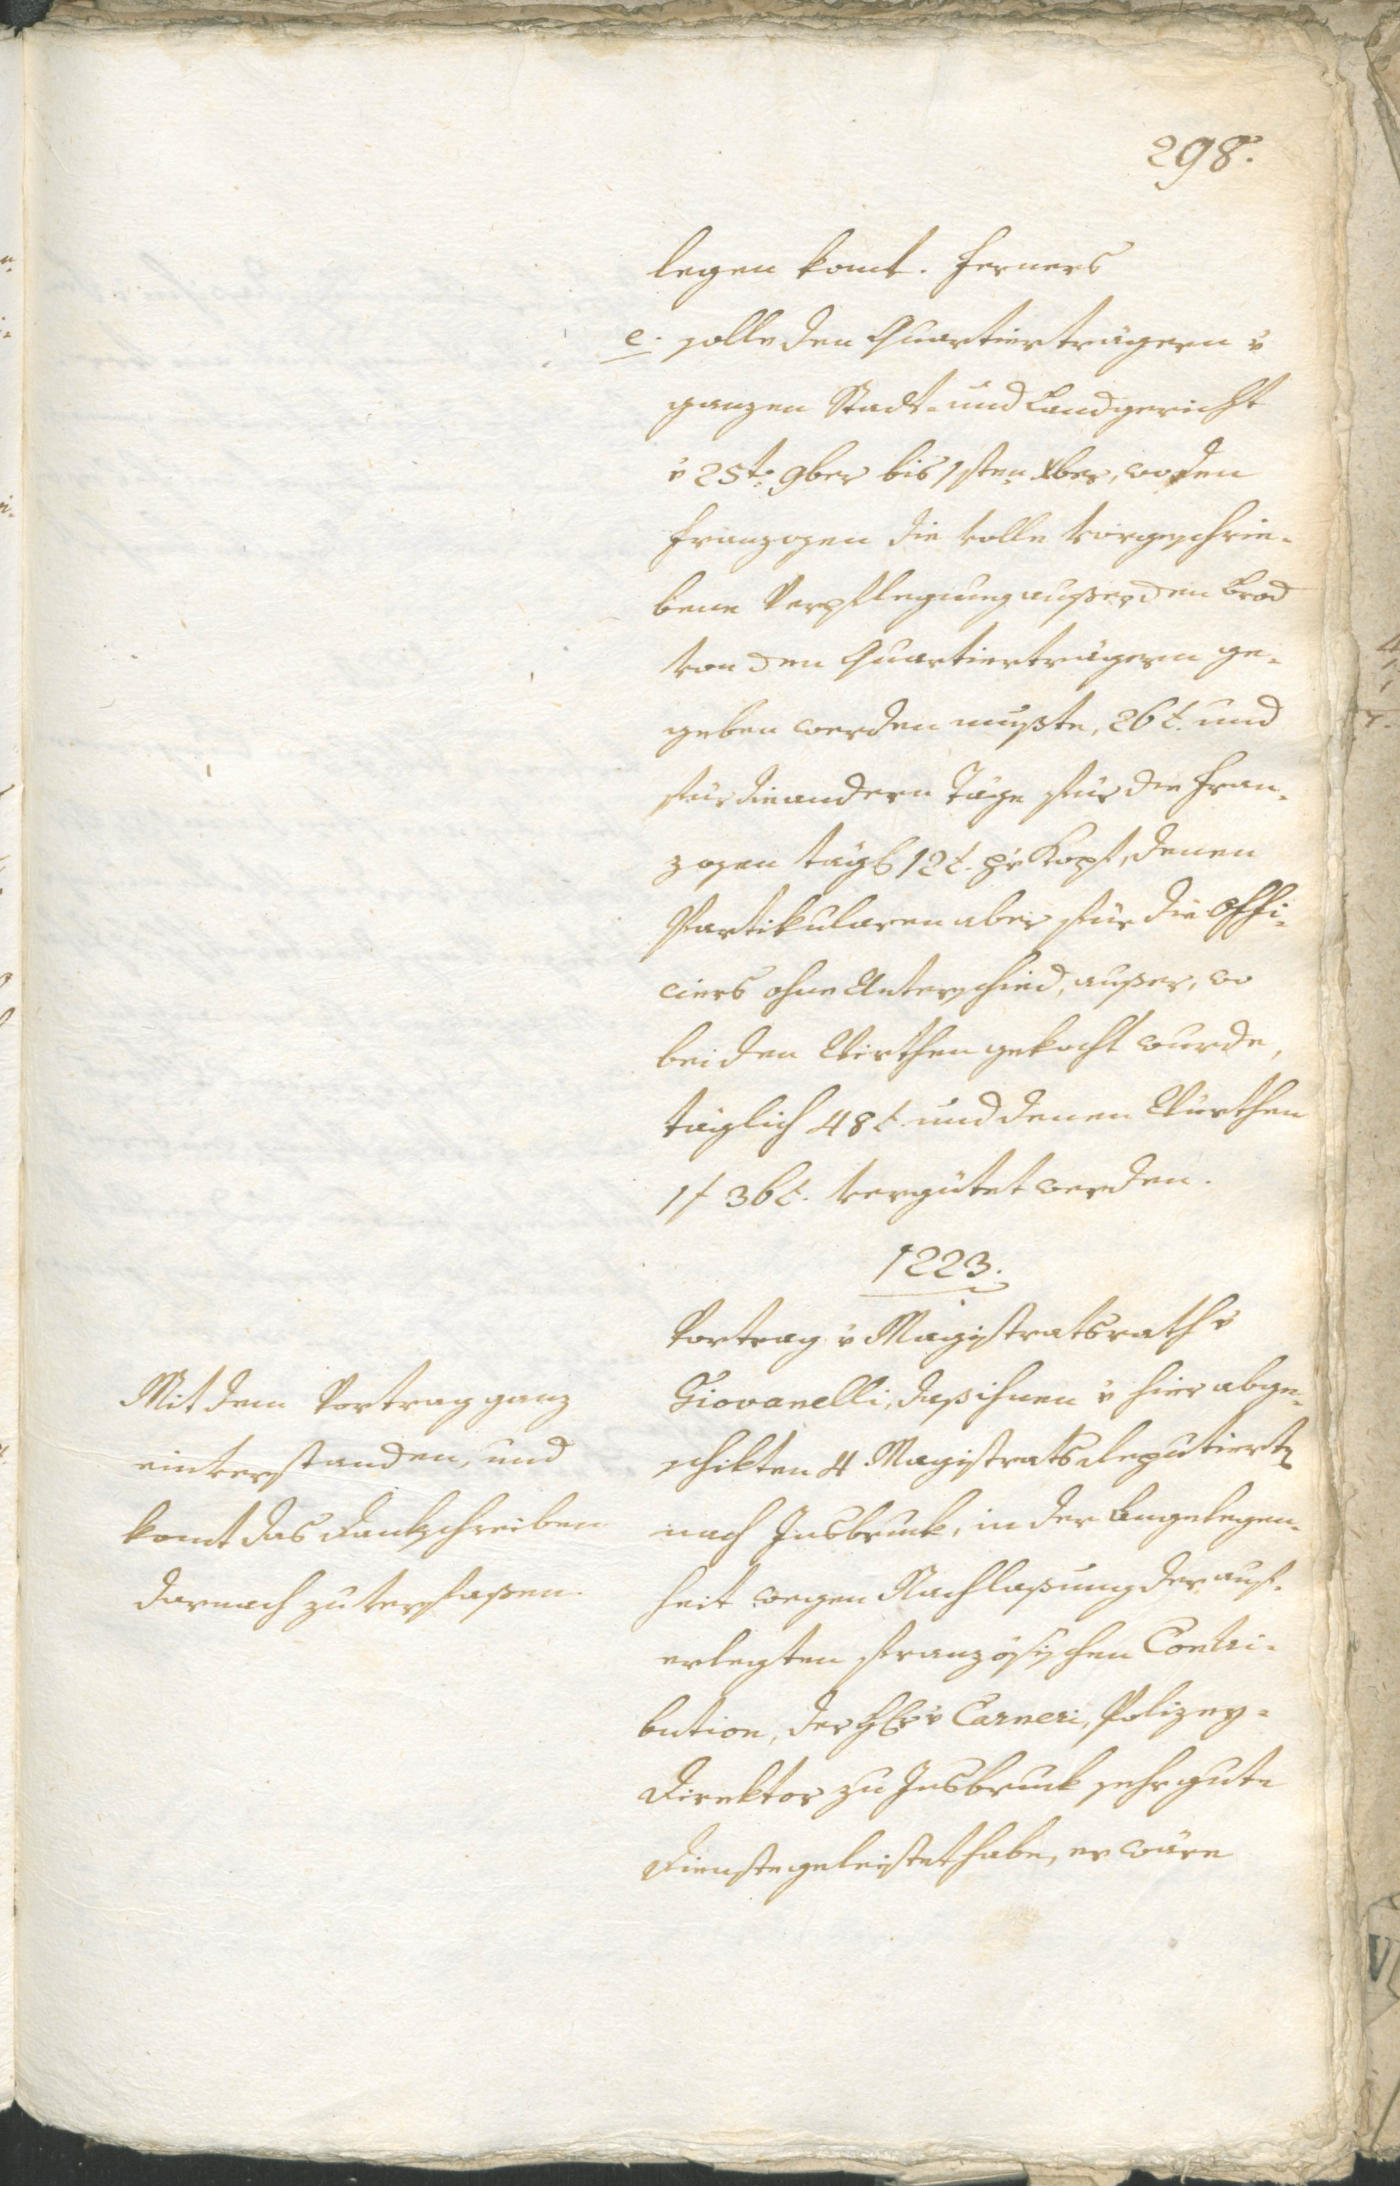 298.
legen komt. Ferners
e. solle den Quartierträgern v
ganzen Stadt- und Landgericht
v 25t. 9ber bis 1sten Xber, wo den
Franzosen die volle vorgeschrie-
bene Verpflegung außer den Brod
von den Quartierträgern ge-
geben werden mußte, 26 t. und
für die andern Täge für die Fran-
zosen tägl 12 t. pr Kopf, denen
Partikularen aber für die Offi-
ciers ohne Unterschied, außer, wo
bei den Wirthen gekocht wurde,
täglich 48 t. und denen Würthen
1 f 36 t. vergütet werden.
1223.
Vortrag v Magistratsrath v
Giovanelli, daß ihnen v hier abge-
schikten 4 Magistratsdeputiertn
nach Insbruck, in der Angelegen-
heit wegen Nachlaßung der auf-
erlegten französischen Contri-
bution, der H v Carneri, Polizey-
Direktor zu Insbruck sehr gute
Dienste geleistet habe, er wäre
Mit dem Vortrag ganz
einverstanden, und
komt das Dankschreiben
darnach zu verfaßen.